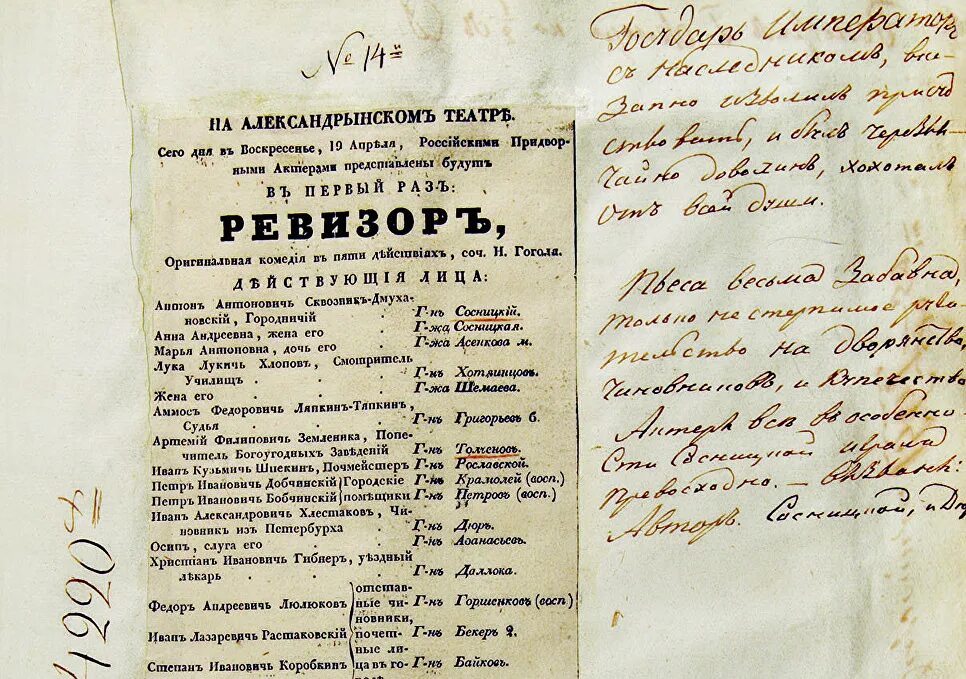 № 14й
НА АЛЕКСАНДРЫНСКОМЪ ТЕАТРѢ.
Сего дня въ Воскресенье, 19 Апрѣля, Россійскими Придвор-
ными Актерами представлены будутъ
ВЪ ПЕРВЫЙ РАЗЪ:
РЕВИЗОРЪ,
Оригинальная комедія въ пяти дѣйствіяхъ, соч. Н. Гоголя.
ДѢЙСТВУЮЩІЯ ЛИЦА:
Антонъ Антоновичь Сквозникъ-Дмуха-
новскій, Городничій . Г-нъ Сосницкій.
Анна Андреевна, жена его . Г-жа Сосницкая.
Марья Антоновна, дочь его . Г-жа Асенкова м.
Лука Лукичь Хлоповъ, Смотритель
Училищъ . . . Г-нъ Хотяинцовъ.
Жена его . . . Г-жа Шемаева.
Аммосъ Федоровичь Ляпкинъ-Тяпкинъ,
Судья . . . Г-нъ Григорьевъ б.
Артемій Филиповичь Земленика, Попе-
читель Богоугодныхъ Заведеній Г-нъ Толченовъ.
Иванъ Кузьмичь Шпекинъ, Почмейстеръ Г-нъ Рославской.
Петръ Ивановичь Добчинскій Городскіе Г-нъ Крамолей (восп.)
Петръ Ивановичь Бобчинскій помѣщики Г-нъ Петровъ (восп.)
Иванъ Александровичь Хлестаковъ, Чи-
новникъ изъ Петербурха . Г-нъ Дюръ.
Осипъ, слуга его . . Г-нъ Аѳанасьевъ.
Христіанъ Ивановичь Гибнеръ, уѣздный
лѣкарь . . . Г-нъ Даллока.
отстав-
Федоръ Андреевичь Люлюковъ ные чи- Г-нъ Горшенковъ (восп)
новники,
Иванъ Лазаревичь Растаковскій почет- Г-нъ Бекеръ 2.
ные ли-
Степанъ Ивановичь Коробкинъ ца въ го- Г-нъ Байковъ.
Государь Императоръ
съ Наслѣдникомъ, вне-
запно изволилъ присуд
ствовать, и былъ Чрезвы-
чайно доволинъ, хохоталъ
отъ всей души.
Пьеса весьма Забавна,
только не стерпимое руга-
тельство на Дворянство,
Чиновниковъ, и Купечество
Актеры всѣ въ особенно-
сти Сосницкой играли
превосходно. — Вызваны:
Авторъ. Сосницкой, и Дюр
4220